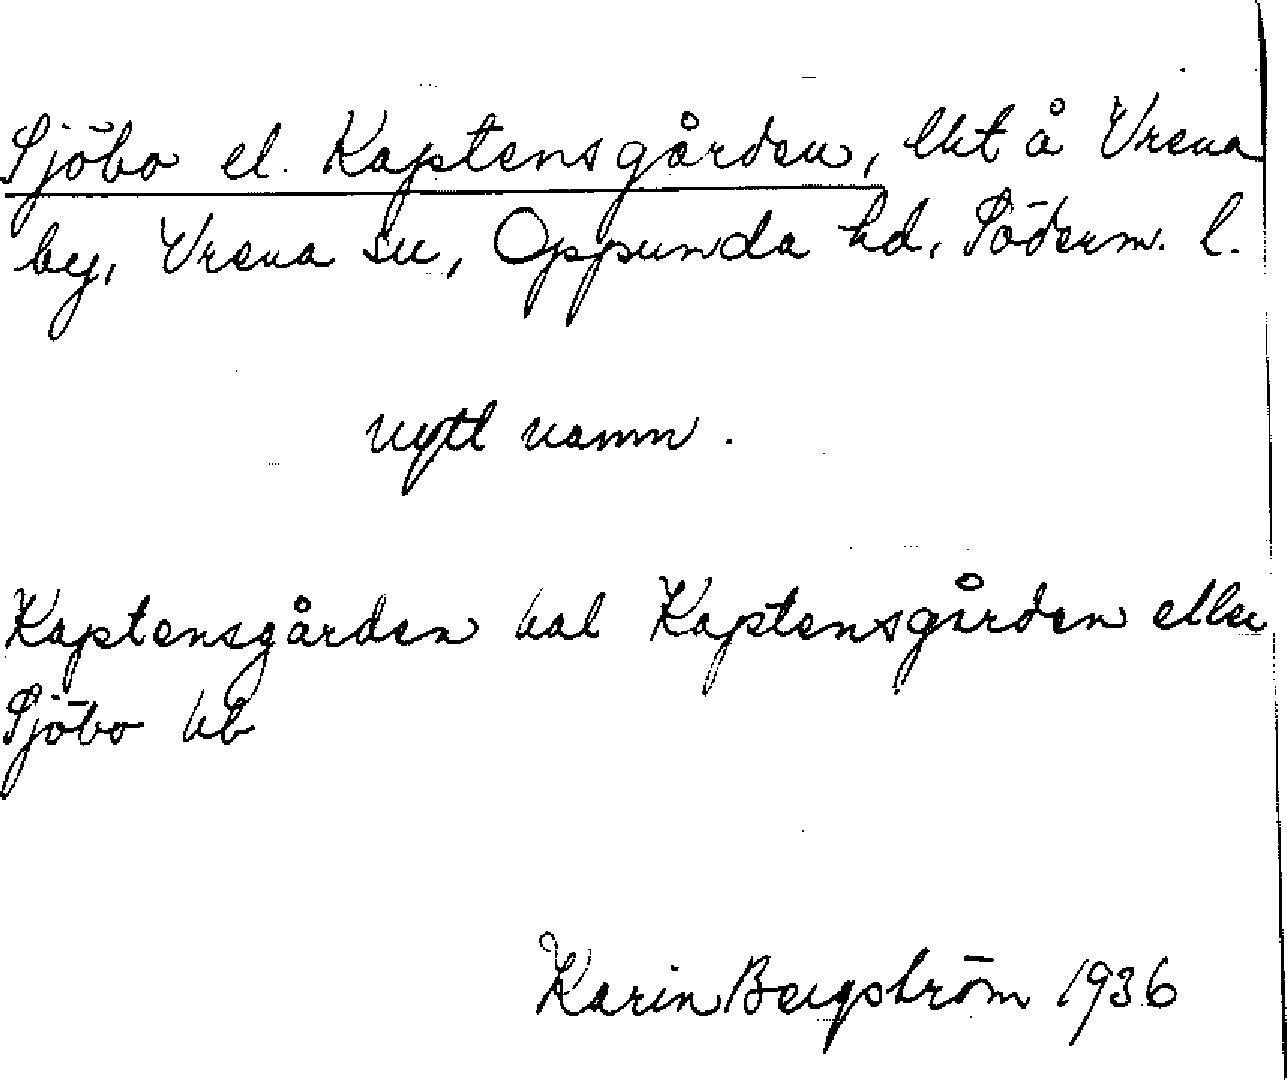 Sjöbo el. Kaptensgården, lht å Vrena
by, Vrena sn, Oppunda hd, Söderm. l.
nytt namn.
Kaptensgården kal Kaptensgården eller
Sjöbo kb
Karin Bergström 1936